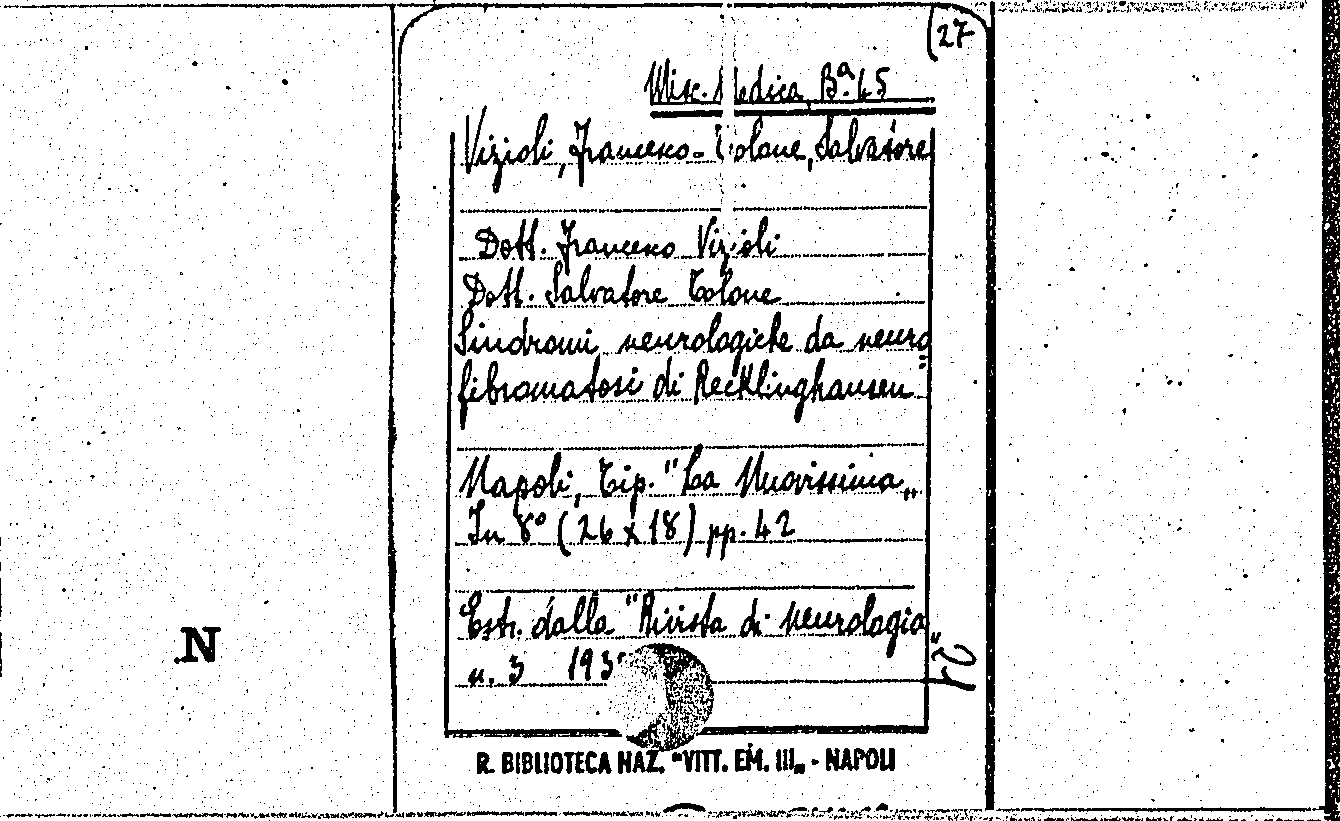 (27
Misc. Medica, Bª. 45
Vizioli, Francesco - Tolone, Salvatore
Dott. Francesco Vizioli
Dott. Salvatore Tolone
Sindromi neurologiche da neuro
fibromatosi di Recklinghausen"
Napoli, Tip. "La Nuovissima„
In 8° (26 x 18) pp. 42
Estr. dalla "Rivista di neurologia"
n. 3
N
R. BIBLIOTECA NAZ. "VITT. EM. III„ - NAPOLI